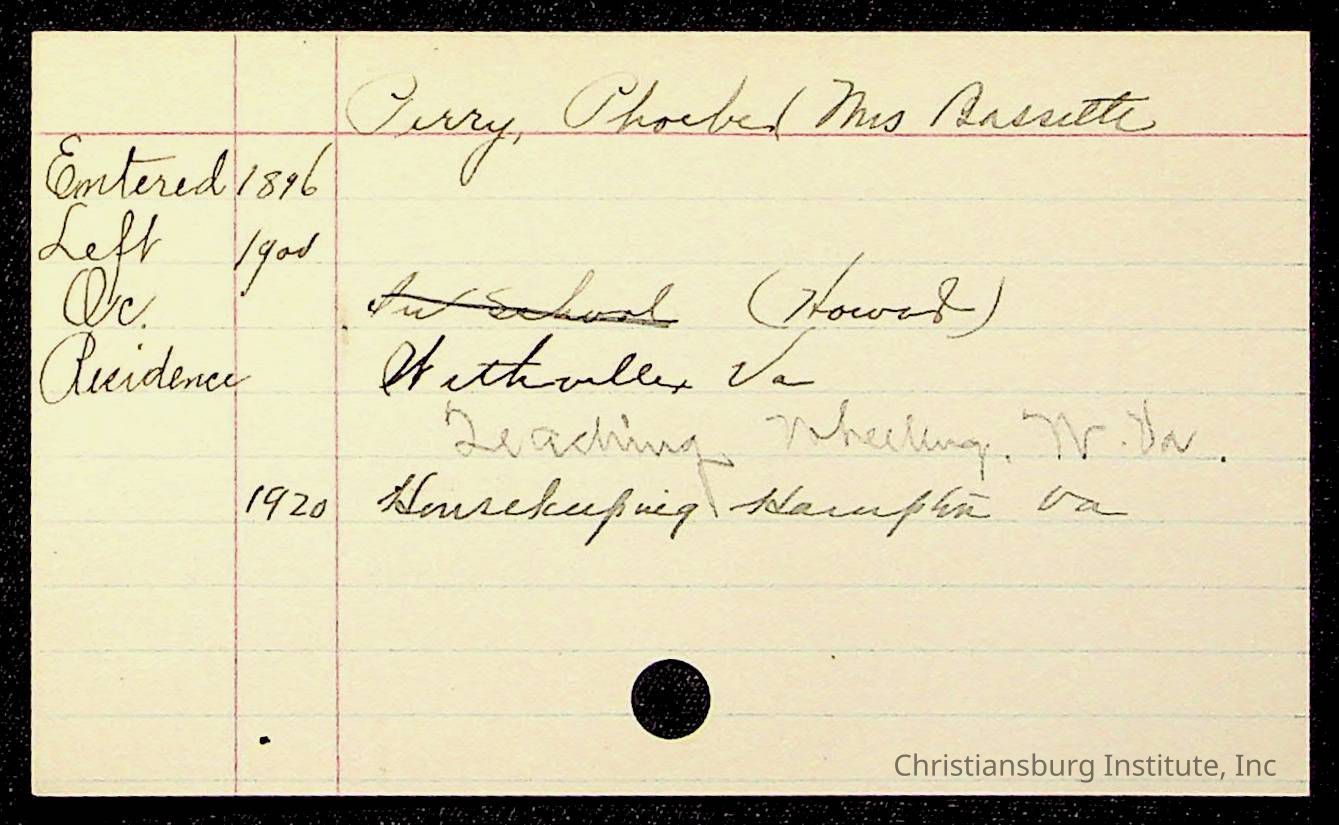 Perry, Phoebe ( Mrs Bassette
Entered 1896
Left 1900
Oc. In School (Howard)
Residence Wytheville, Va
Teaching Wheeling, W. Va.
1920 Housekeeping Hampton Va
Christiansburg Institute, Inc